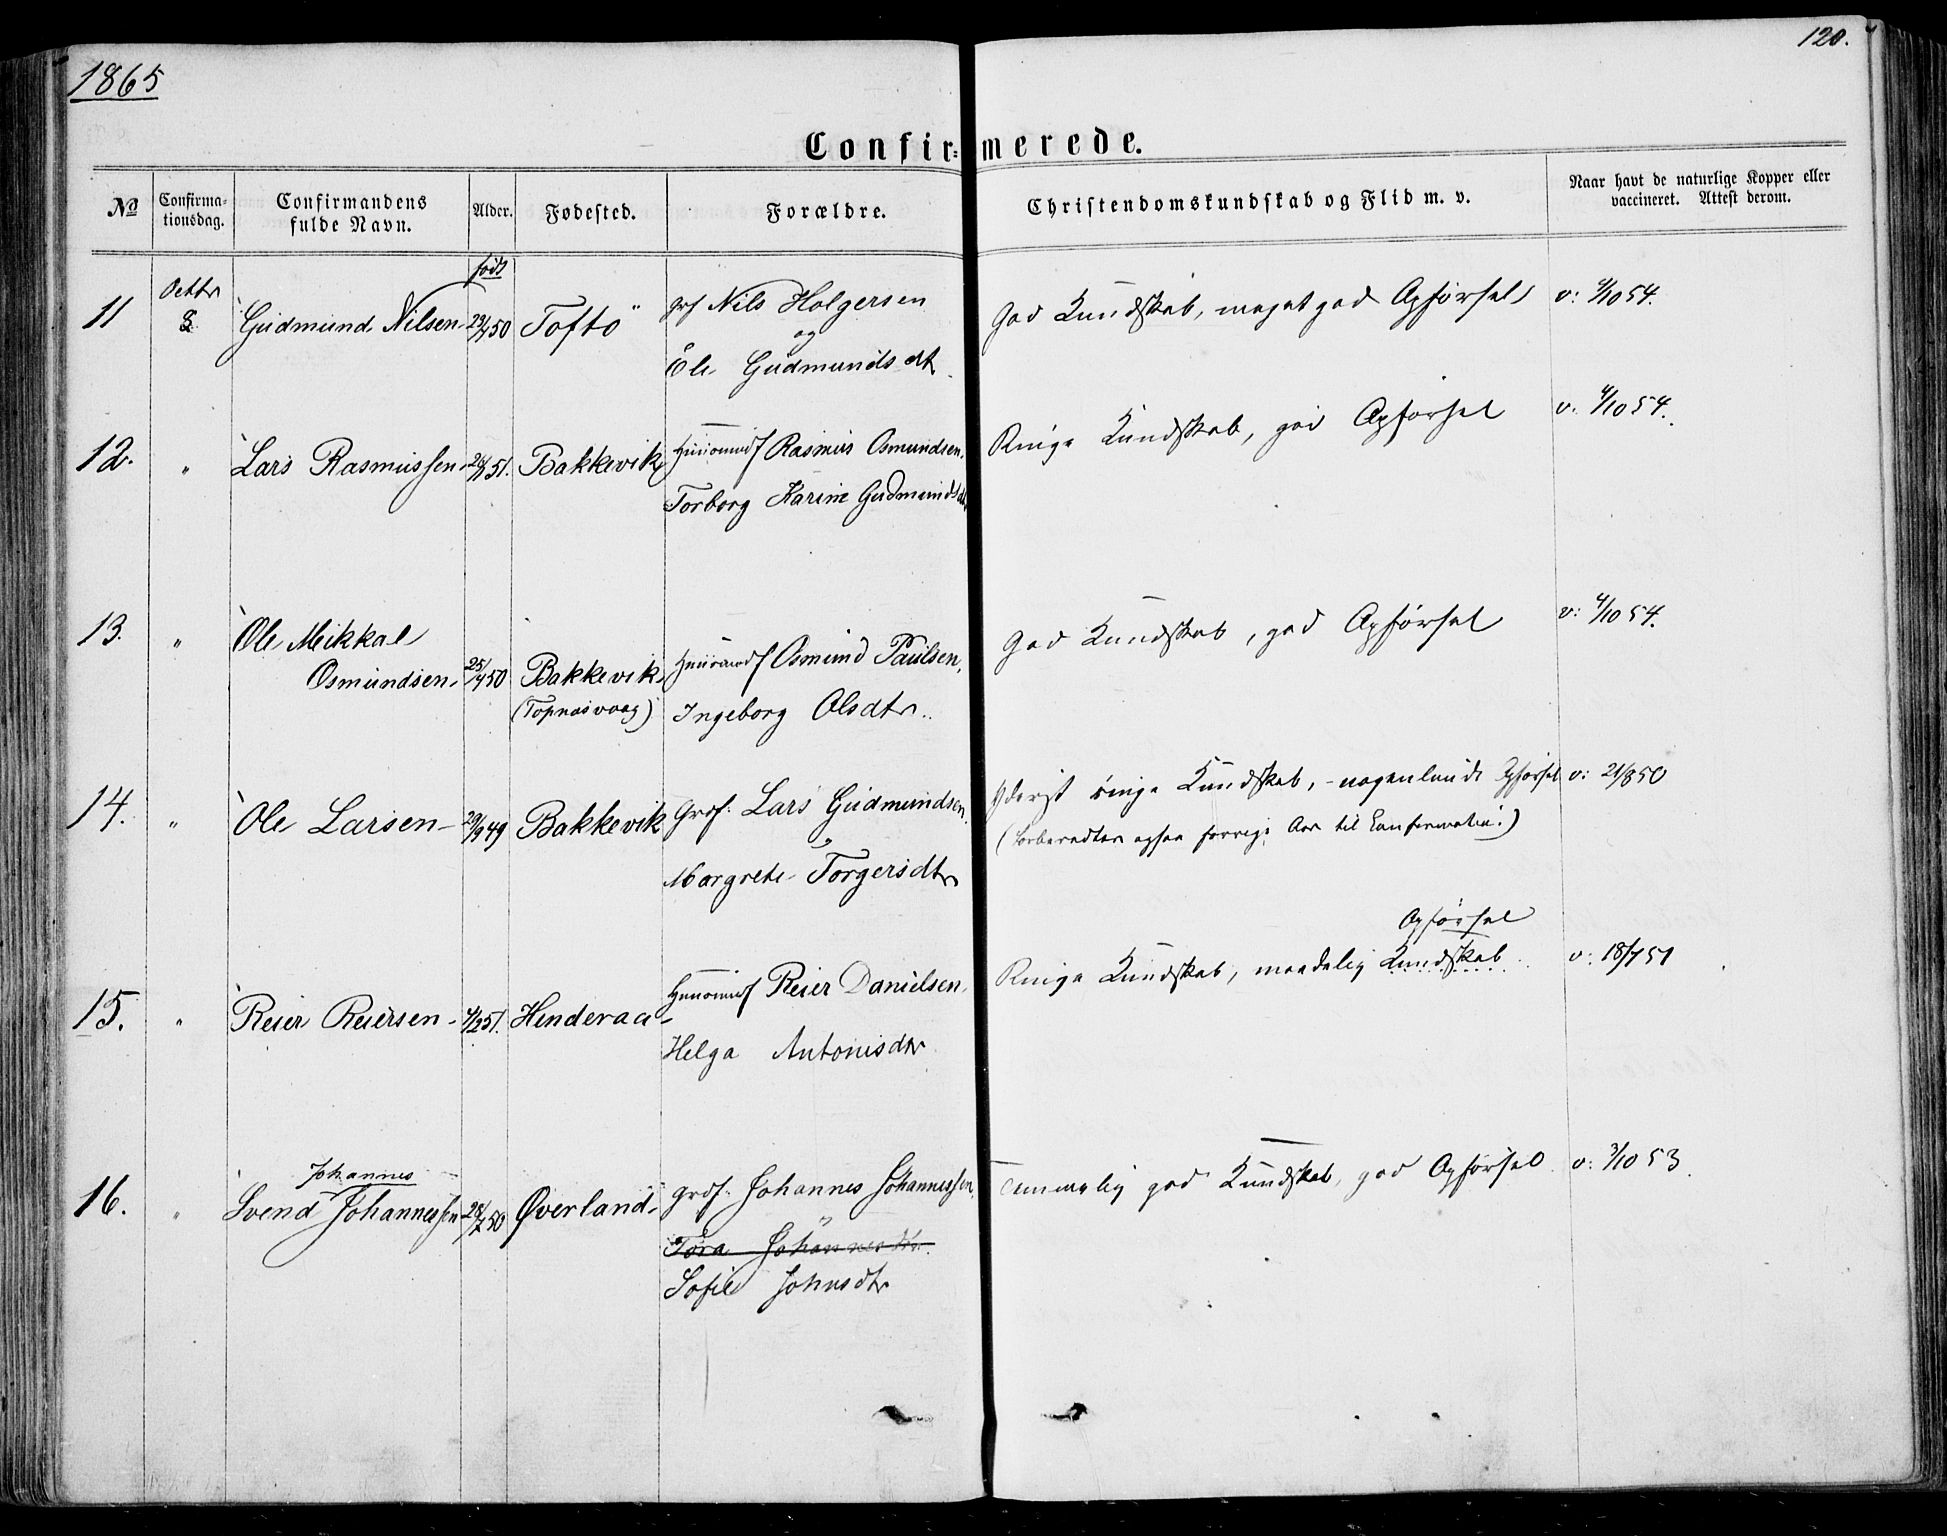 1865
120.
Confir= merede.
No
Confirma-
tionsdag.
Confirmandens
fulde Navn.
Alder.
Fødested.
Forældre.
Christendomskundskab og Flid m. v.
Naar havt de naturlige Kopper eller
vaccineret. Attest derom.
født
11 Octbr 8. Gudmund Nilsen 50 Toftø grf Nils Holgersen God Kundskab, meget god Opførsel v: 4/10 54.
og
Ele Gudmundsdt.
12. " Lars Rasmussen 51. Bakkevik Huusmd Rasmus Osmundsen. Ringe Kundskab, god Opførsel v: 4/10 54.
Torborg Karine Gudmundsdt
13. " Ole Mikkal God Kundskab, god Opførsel v: 4/10 54.
Osmundsen 50 Bakkevik Huusmd Osmund Paulsen,
(Topnæsvaag) Ingeborg Olsdtr.
14. " Ole Larsen 29/9 49 Bakkevik Grdf. Lars Gudmundsen. Yderst ringe Kundskab, - nogenlunde Opførsel v: 21/8 50
(Forberedtes ogsaa forrige Aar til Confirmation.)
Margrete Torgersdtr
Opførsel
15. " Reier Reiersen 4/2 51. Hinderaa Huusmd Reier Danielsen, Ringe Kundskab, maadelig Kundskab v: 18/7 51
Helga Antonisdtr
Johannes
16. " Svend Johannessen 50 Øverland grdf. Johannes Johannessen, Temmelig god Kundskab, god Opførsel v: 3/10 53.
Tora Johannesdtr.
Sofie Johnsdtr